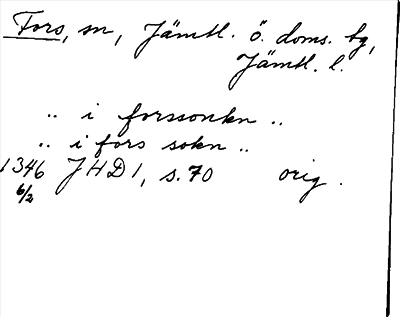 Fors, sn, Jämtl. ö. doms. tg,
Jämtl. l.
„ i forssonkn „
„ i fors sokn „
1346 JHD 1, s. 70 orig.
6/2